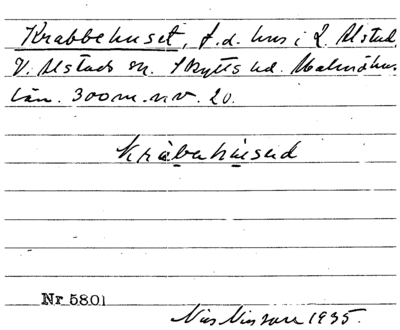 Krabbehuset, f.d. hus i L. Alstad.
V. Alstads sn. Skytts hd. Malmöhus
län. 300 m. n.v. 20.
kràbahùsed
Nr 5801
Nils Nilsson 1935.